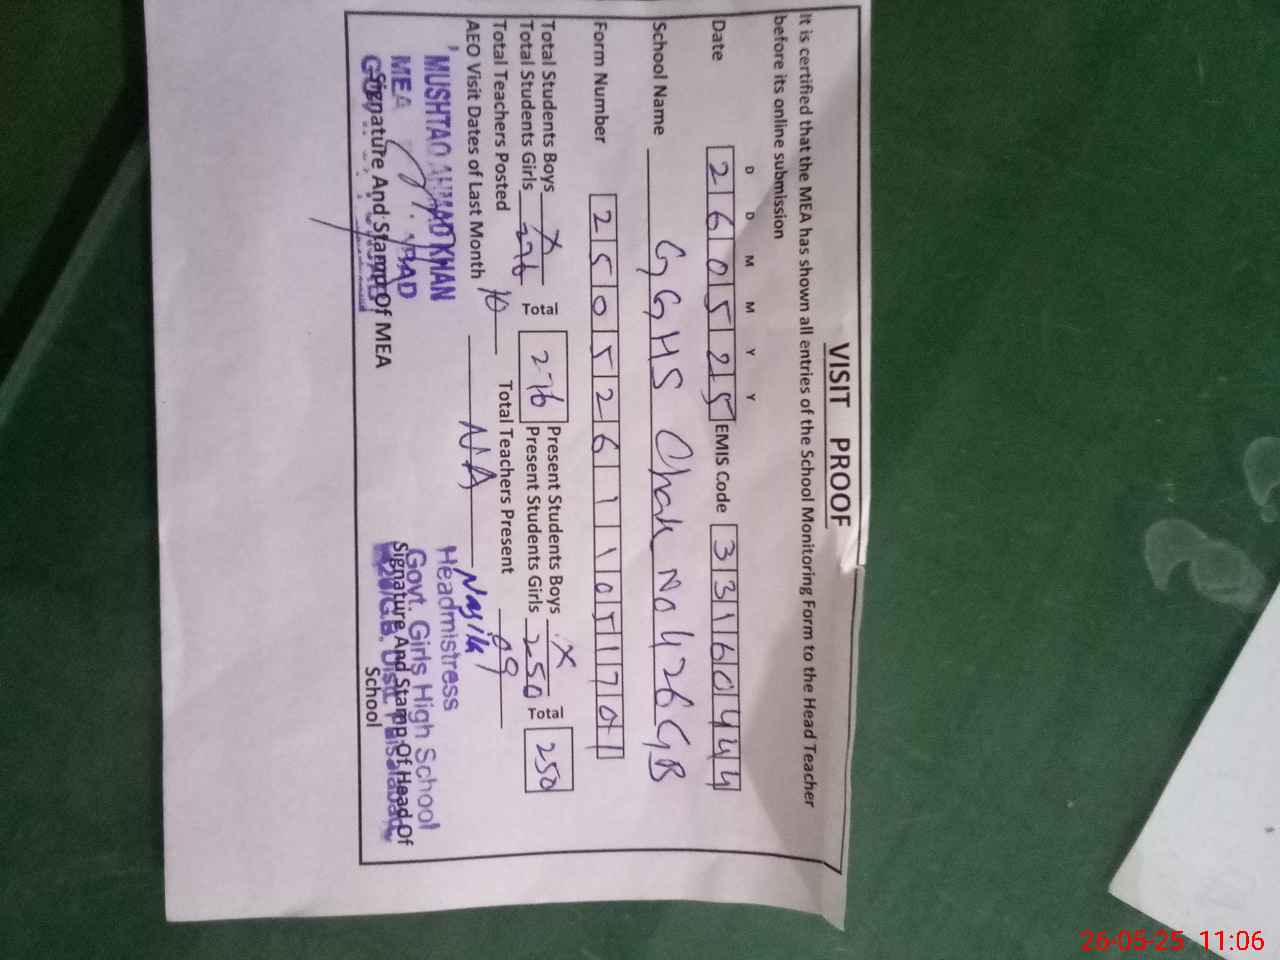 VISIT PROOF
It is certified that the MEA has shown all entries of the School Monitoring Form to the Head Teacher
before its online submission
D D M M Y Y
Date 260525 EMIS Code 33160444
School Name GGHS Chak No 426 GB
Form Number 25052611051701
Total Students Boys X Total 276 Present Students Boys X Total 250
Total Students Girls 276 Present Students Girls 250
Total Teachers Posted 10 Total Teachers Present 09
AEO Visit Dates of Last Month NA
MUSHTAQ AHMAD KHAN
MEA
Signature And Stamp Of MEA
Headmistress
Govt. Girls High School
Signature And Stamp Of Head Of
School
26-05-25 11:06